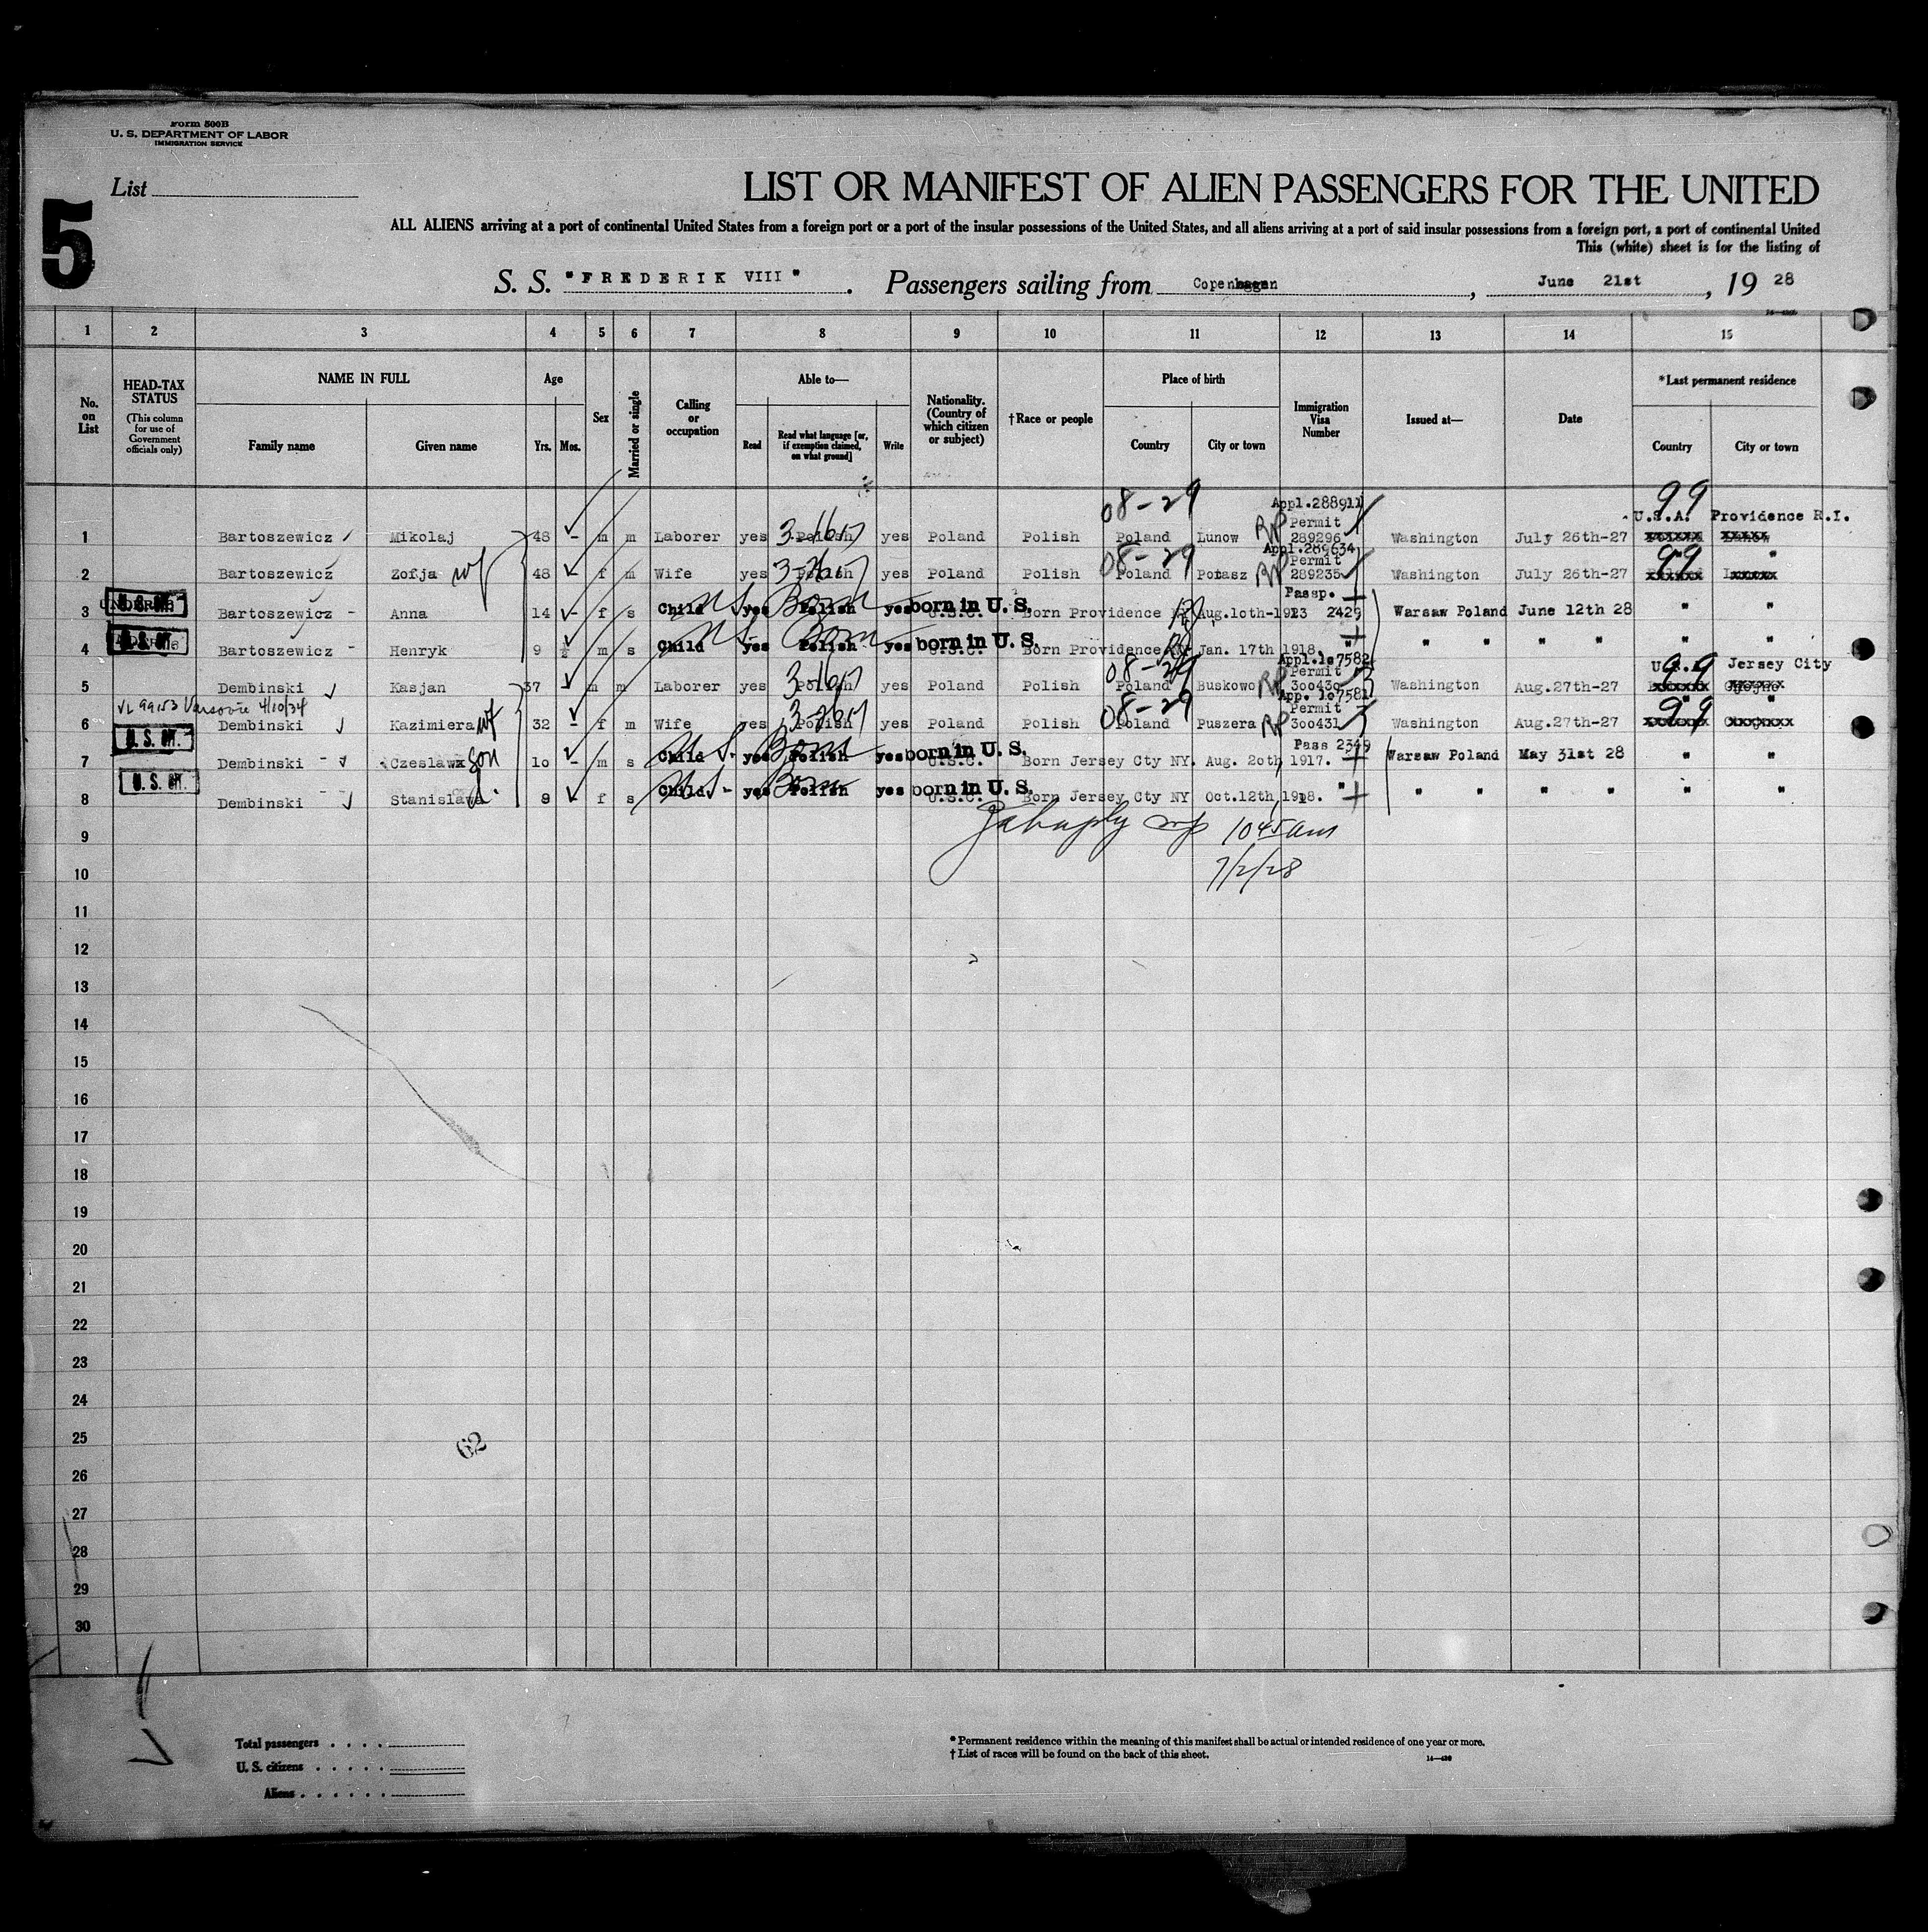 Form 500B
U. S. DEPARTMENT OF LABOR
IMMIGRATION SERVICE
List
5
LIST OR MANIFEST OF ALIEN PASSENGERS FOR THE UNITED
ALL ALIENS arriving at a port of continental United States from a foreign port or a port of the insular possessions of the United States, and all aliens arriving at a port of said insular possessions from a foreign port, a port of continental United
This (white) sheet is for the listing of
S. S. "FREDERIK VIII". Passengers sailing from Copenhagen, June 21st, 19 28
1 2 3 4 5 6 7 8 9 10 11 12 13 14 15
No. on List
HEAD-TAX STATUS
(This column for use of Government officials only)
NAME IN FULL
Family name Given name
Age
Yrs. Mos.
Sex
Married or single
Calling or occupation
Able to—
Read
Read what language [or, if exemption claimed, on what ground]
Write
Nationality. (Country of which citizen or subject)
†Race or people
Place of birth
Country City or town
Immigration Visa Number
Issued at—
Date
*Last permanent residence
Country City or town
08-29 Appl.288911 99
U.S.A. Providence R.I.
1 Bartoszewicz Mikolaj 48 - m m Laborer yes Polish yes Poland Polish Poland Lunow RP Permit 289296 Washington July 26th-27
08-29 Appl.289634 99
2 Bartoszewicz Zofja wf 48 - f m Wife yes Polish yes Poland Polish Poland Potasz RP Permit 289235 Washington July 26th-27 "
3 Bartoszewicz - Anna 14 - f s Child US Born yes Polish yes born in U. S. U.S.C. Born Providence Aug.10th-1913 Passp. 2429 Warsaw Poland June 12th 28 " "
4 Bartoszewicz - Henryk 9 ½ m s Child US Born yes Polish yes born in U. S. U.S.C. Born Providence Jan. 17th 1918. " " " " " " "
08-29 Appl.107582 99
U.S.A. Jersey City
5 Dembinski Kasjan 37 - m m Laborer yes Polish yes Poland Polish Poland Buskowo RP Permit 300430 Washington Aug.27th-27
VL 99153 Varsovie 4/10/34
08-29 App. 107581 99
6 Dembinski Kazimiera wf 32 - f m Wife yes Polish yes Poland Polish Poland Puszera RP Permit 300431 Washington Aug.27th-27 " "
U. S. CIT.
7 Dembinski - Czeslaw son 10 - m s Child US Born yes Polish yes born in U. S. U.S.C. Born Jersey Cty NY. Aug. 20th 1917. Pass 2349 Warsaw Poland May 31st 28 " "
U. S. CIT.
8 Dembinski Stanislawa d. 9 - f s Child US Born yes Polish yes born in U. S. U.S.C. Born Jersey Cty NY Oct.12th 1918. " " " " " " "
9 1045 am
10 7/2/28
11
12
13
14
15
16
17
18
19
20
21
22
23
24
25
62
26
27
28
29
30
Total passengers
U. S. citizens
Aliens
* Permanent residence within the meaning of this manifest shall be actual or intended residence of one year or more.
† List of races will be found on the back of this sheet.